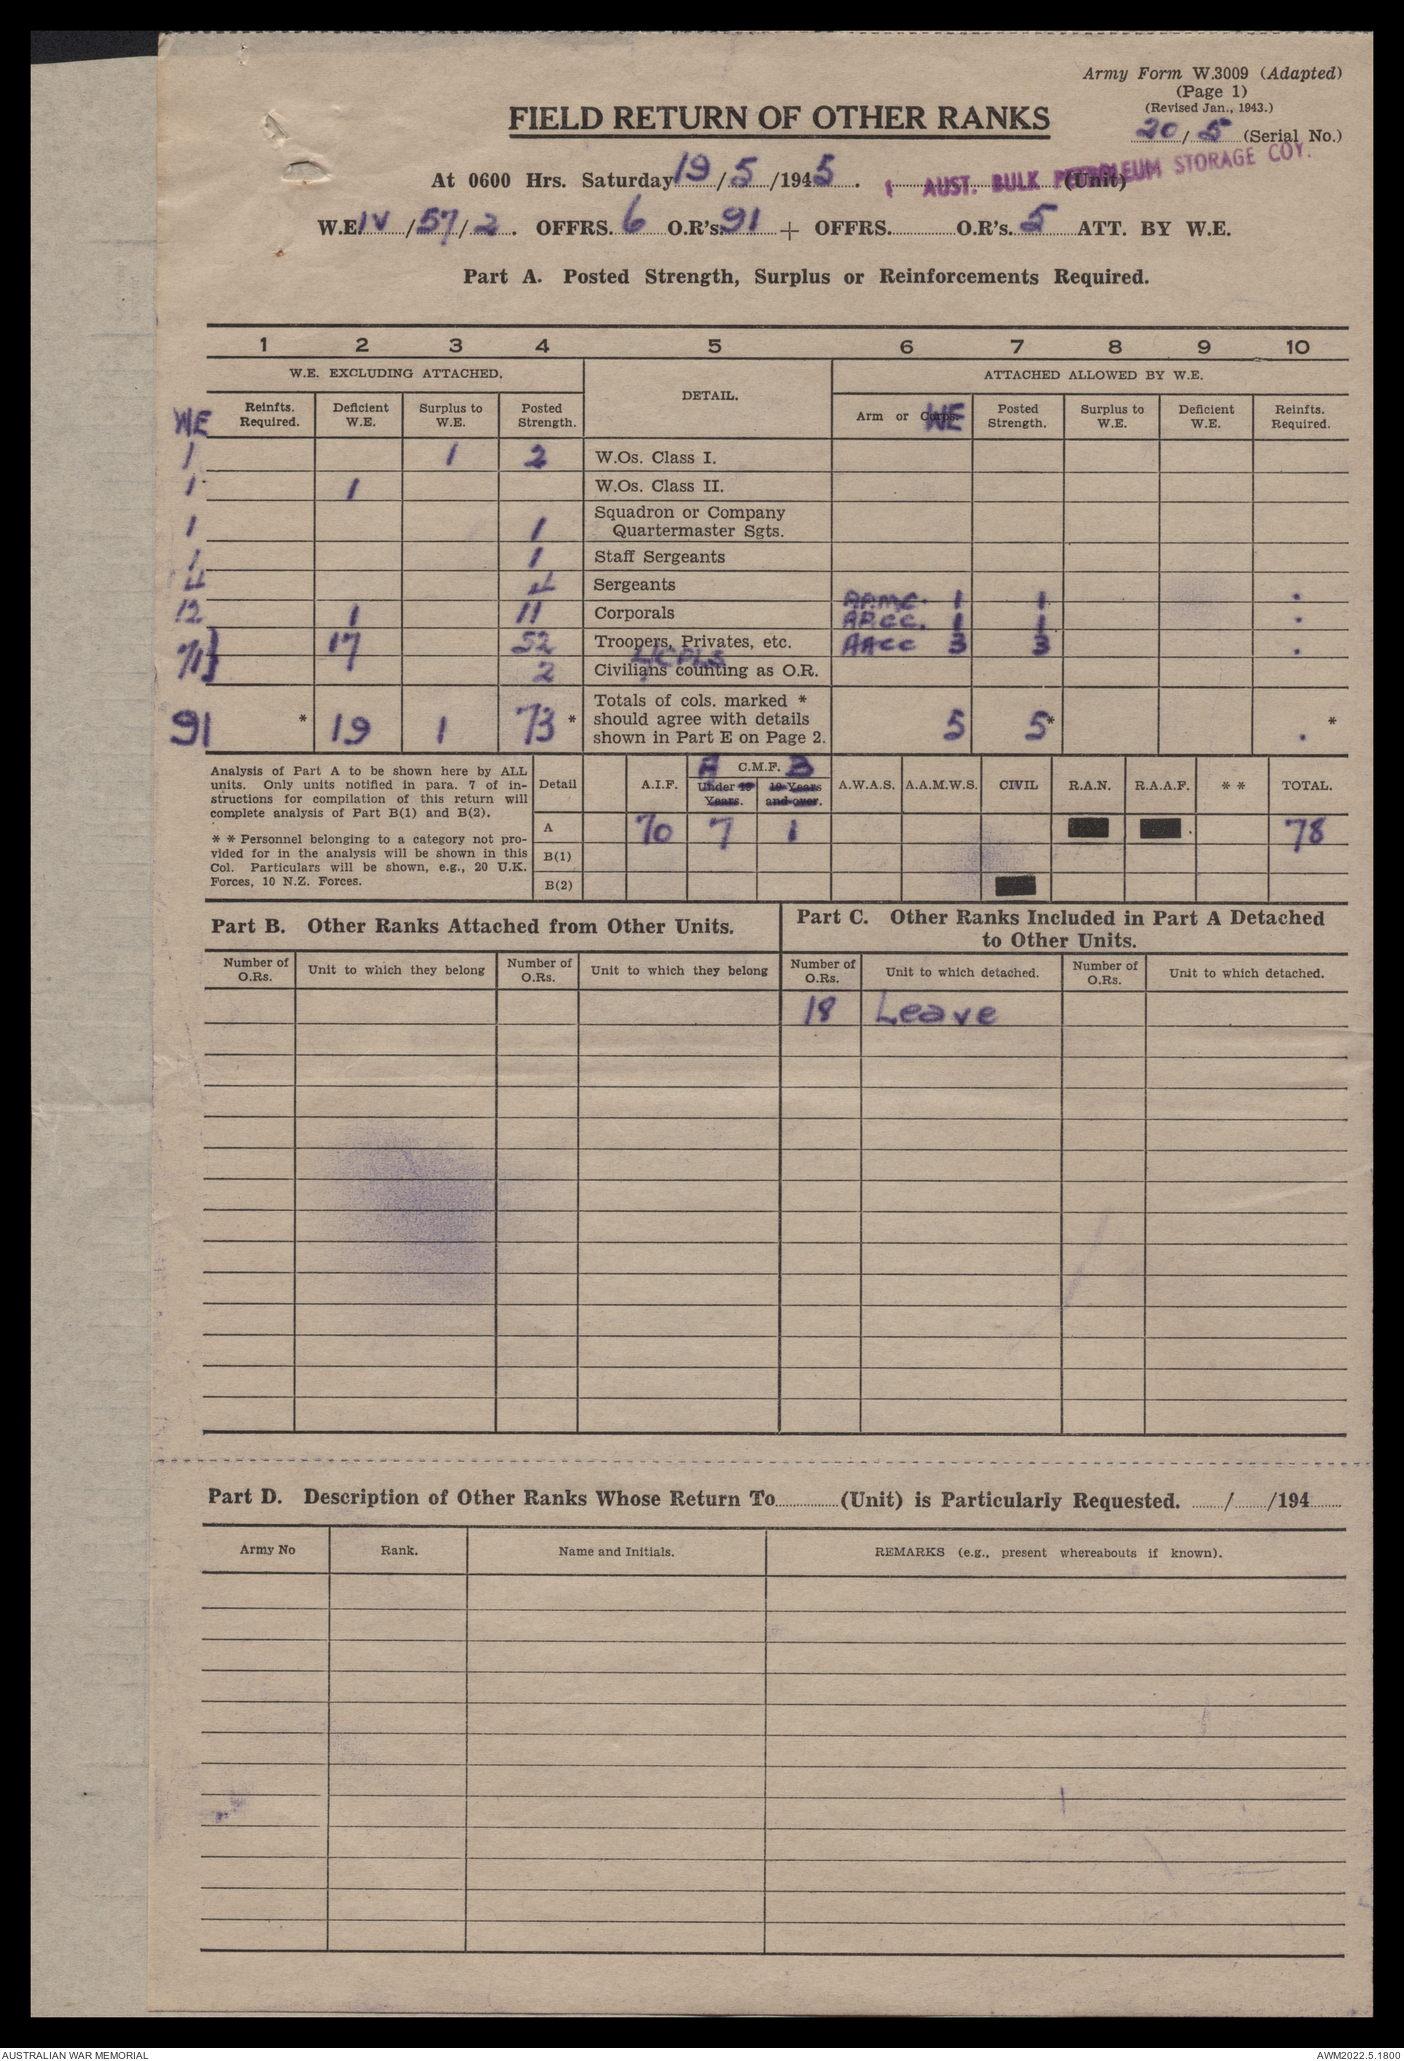 Army Form W.3009 (Adapted)
(Page 1)
(Revised Jan., 1943.)
FIELD RETURN OF OTHER RANKS
20/5 (Serial No.)
At 0600 Hrs. Saturday 19/5/1945. 1 AUST. BULK PETROLEUM STORAGE COY. (Unit)
W.E. IV/57/2. OFFRS. 6 O.R's. 91 + OFFRS. O.R's. 5 ATT. BY W.E.
Part A. Posted Strength, Surplus or Reinforcements Required.
1 2 3 4 5 6 7 8 9 10
W.E. EXCLUDING ATTACHED. DETAIL. ATTACHED ALLOWED BY W.E.
WE Reinfts. Required. Deficient W.E. Surplus to W.E. Posted Strength. Arm or Corps. WE Posted Strength. Surplus to W.E. Deficient W.E. Reinfts. Required.
1 1 2 W.Os. Class I.
1 1 W.Os. Class II.
1 1 Squadron or Company Quartermaster Sgts.
1 1 Staff Sergeants
4 4 Sergeants
12 1 11 Corporals AAMC. 1 1 .
AACC. 1 1 .
71} 17 52 Troopers, Privates, etc. AACC 3 3 .
L/CPLS
2 Civilians counting as O.R.
91 * 19 1 73 * Totals of cols. marked * should agree with details shown in Part E on Page 2. 5 5* . *
Analysis of Part A to be shown here by ALL
units. Only units notified in para. 7 of in-
structions for compilation of this return will
complete analysis of Part B(1) and B(2).
* * Personnel belonging to a category not pro-
vided for in the analysis will be shown in this
Col. Particulars will be shown, e.g., 20 U.K.
Forces, 10 N.Z. Forces.
Detail A.I.F. A C.M.F. B A.W.A.S. A.A.M.W.S. CIVIL R.A.N. R.A.A.F. * * TOTAL.
Under 19 Years. 19 Years and over.
A 70 7 1 78
B(1)
B(2)
Part B. Other Ranks Attached from Other Units.
Part C. Other Ranks Included in Part A Detached
to Other Units.
Number of O.Rs. Unit to which they belong Number of O.Rs. Unit to which they belong Number of O.Rs. Unit to which detached. Number of O.Rs. Unit to which detached.
18 Leave
Part D. Description of Other Ranks Whose Return To (Unit) is Particularly Requested. / /194
Army No Rank. Name and Initials. REMARKS (e.g., present whereabouts if known).
AUSTRALIAN WAR MEMORIAL AWM2022.5.1800